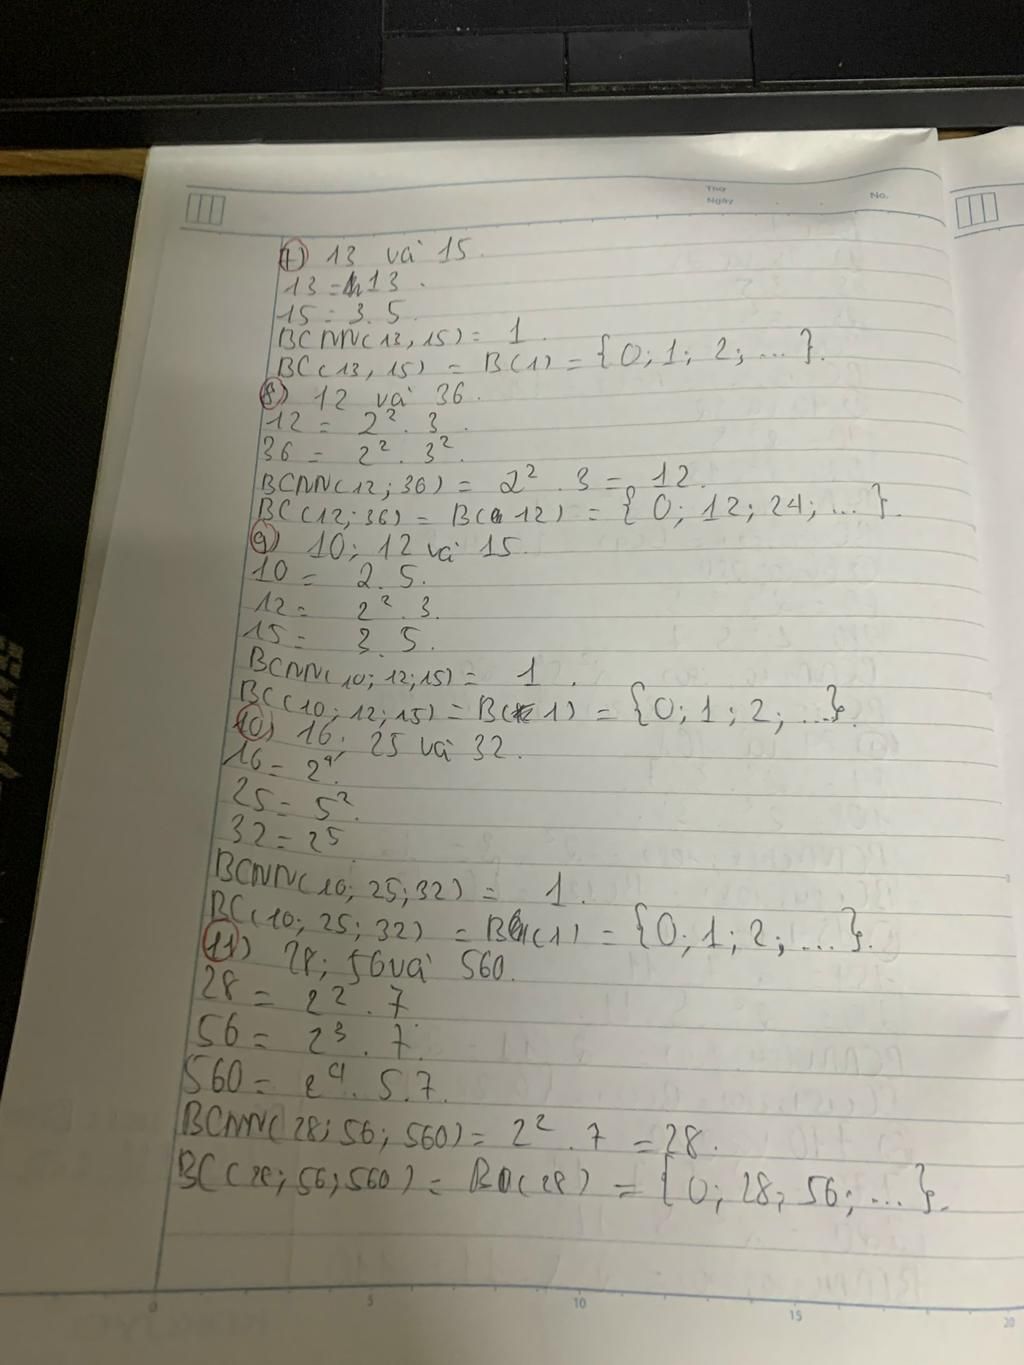 Thứ
Ngày
No.
7) 13 và 15.
13 = 13.
15 = 3.5.
BCNN(13,15) = 1.
BC(13,15) = B(1) = {0; 1; 2; ...}.
8) 12 và 36.
12 = 2². 3.
36 = 2². 3².
BCNN(12; 36) = 2². 3 = 12.
BC(12; 36) = B(12) = {0; 12; 24; ...}.
9) 10; 12 và 15.
10 = 2.5.
12 = 2². 3.
15 = 3. 5.
BCNN(10; 12; 15) = 1.
BC(10; 12; 15) = B(1) = {0; 1; 2; ...}.
10) 16; 25 và 32.
16 = 2⁴.
25 = 5².
32 = 25
BCNN(10; 25; 32) = 1.
BC(10; 25; 32) = B(1) = {0; 1; 2; ...}.
11) 28; 56 và 560.
28 = 2². 7
56 = 2³. 7.
560 = 2⁴. 5.7.
BCNN(28; 56; 560) = 2². 7 = 28.
BC(28; 56; 560) = B(28) = {0; 28; 56; ...}.
0 5 10 15 20